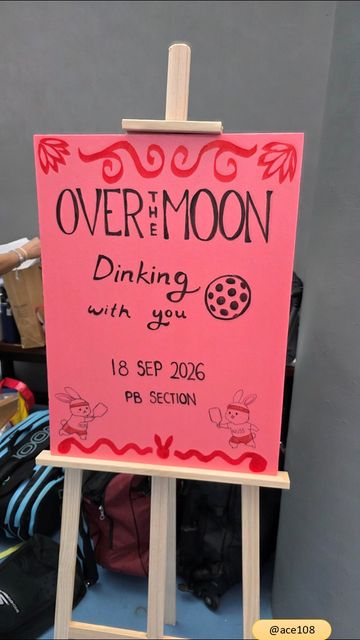 OVER THE MOON
Dinking
with you
18 SEP 2026
PB SECTION
@ace108